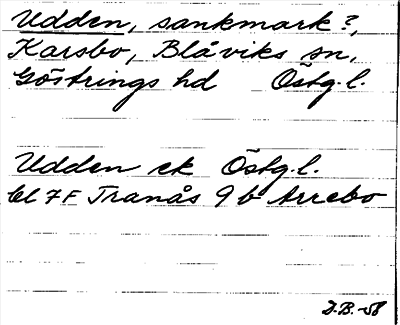 Udden, sankmark?,
Karsbo, Blåviks sn,
Göstrings hd Östg.l.
Udden ek Östg.l.
bl 7F Tranås 9b Arrebo
J.B.-58